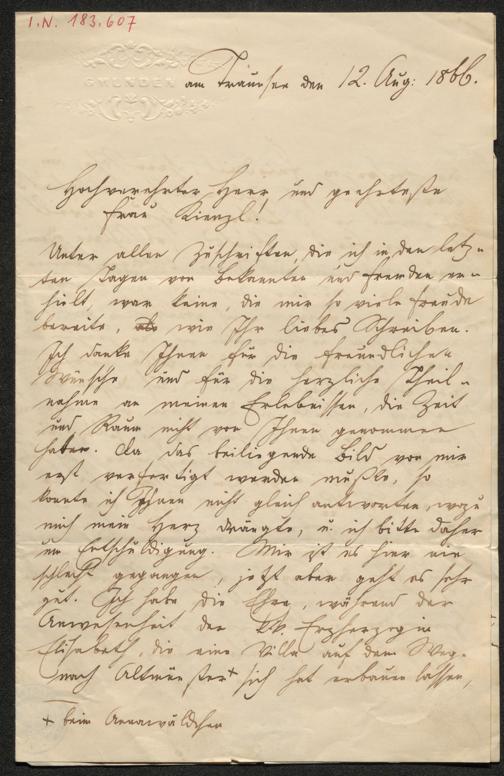 I.N. 183.607
GMUNDEN
am Traunsee den 12. Aug: 1866.
Hochverehrter Herr und geehrteste
Frau Kienzl!
Unter allen Zuschriften, die ich in den letz-
ten Tagen von Bekannten und Fremden er-
hielt, war keine, die mir so viele Freude
bereite, wie Ihr liebes Schreiben.
Ich danke Ihnen für die freundlichen
Wünsche und für die herzliche Theil-
nahme an meinen Erlebnissen, die Zeit
und Raum nicht von Ihnen genommen
haben. Da das beiliegende Bild von mir
erst verfertigt werden mußte, so
konnte ich Ihnen nicht gleich antworten, wozu
mich mein Herz drängte, u. ich bitte daher
um Entschuldigung. Mir ist es hier nie
schlecht gegangen, jetzt aber geht es sehr
gut. Ich habe die Ehre, während der
Anwesenheit der Erzherzogin
Elisabeth, die eine Villa auf dem Weg
nach Altmünster+ sich hat erbauen lassen,
+ beim Annawäldchen